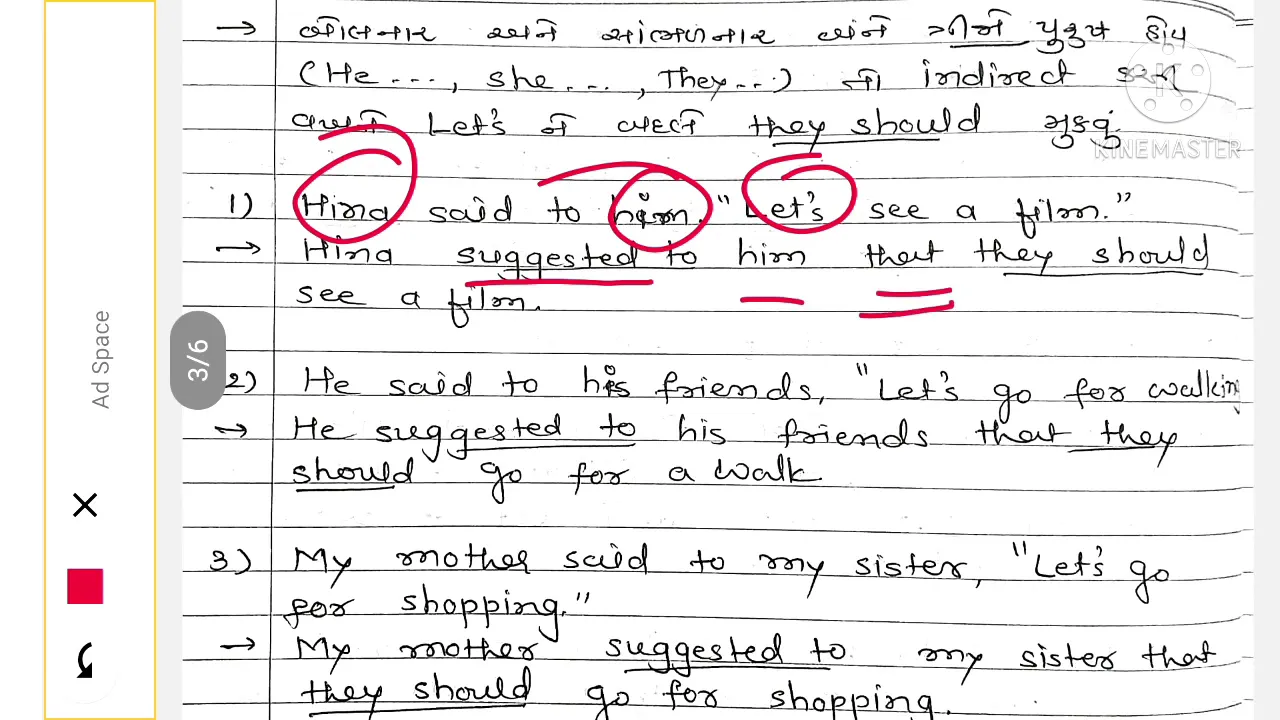 → બોલનાર અને સાંભળનાર બંને ત્રીજો પુરુષ હોય
(He ..., she ..., They ...) તો indirect કરતી
વખતે Let's ને બદલે they should મુકવું
KINEMASTER
1) Hina said to him, "Let's see a film."
→ Hina suggested to him that they should
see a film.
3/6
Ad Space
2) He said to his friends, "Let's go for walking
→ He suggested to his friends that they
should go for a walk
3) My mother said to my sister, "Let's go
for shopping."
→ My mother suggested to my sister that
they should go for shopping.